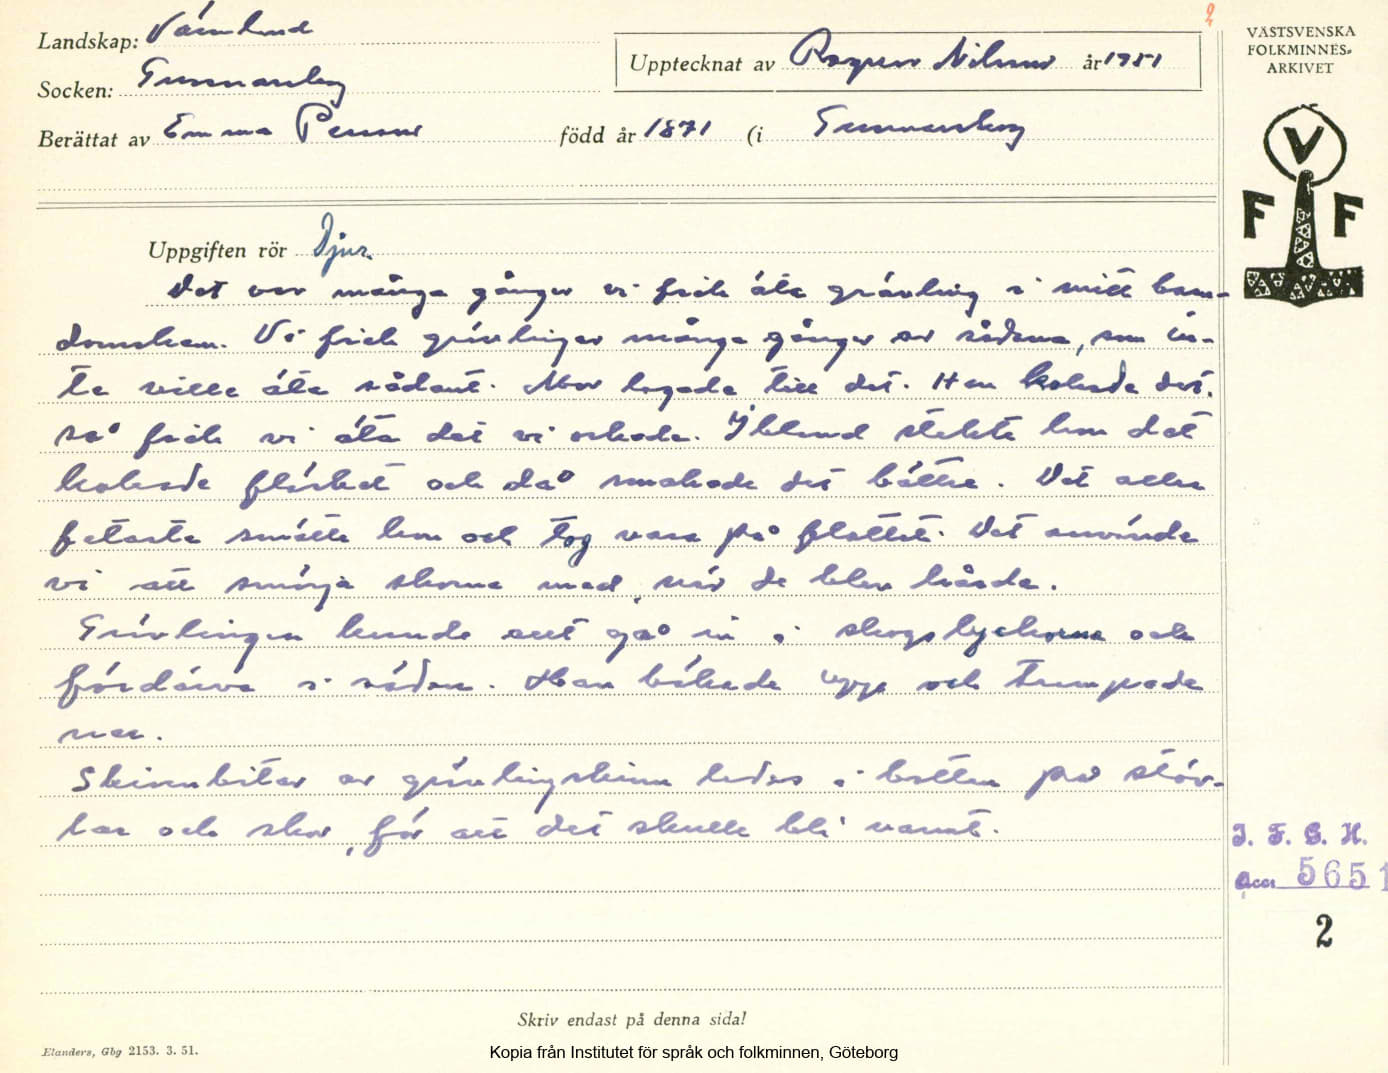 2
Landskap: Värmland
Socken: Gunnarskog
Berättat av Emma Persson född år 1871 (i Gunnarskog
Upptecknat av Ragnar Nilsson år 1951
VÄSTSVENSKA
FOLKMINNES-
ARKIVET
V
F F
Uppgiften rör Djur.
Det var många gånger vi fick äta grävling i mitt barn-
domshem. Vi fick grävlingar många gånger av sådana, som in-
te ville äta sådant. Mor lagade till det. Hon kokade det.
så fick vi äta det vi orkade. Ibland stekte hon det
kokade fläsket och då smakade det bättre. Det allra
fetaste smälte hon och tog vara på flottet. Det använde
vi att smörja skorna med, när de blev hårda.
Grävlingen kunde att gå in i skogslyckorna och
fördärva i säden. Han bökade upp och trampade
ner.
Skinnbitar av grävlingskinn lades i botten på stöv-
lar och skor, för att det skulle bli varmt.
I. F. G. H.
acc. 5651
2
Skriv endast på denna sida!
Elanders, Gbg 2153. 3. 51.
Kopia från Institutet för språk och folkminnen, Göteborg